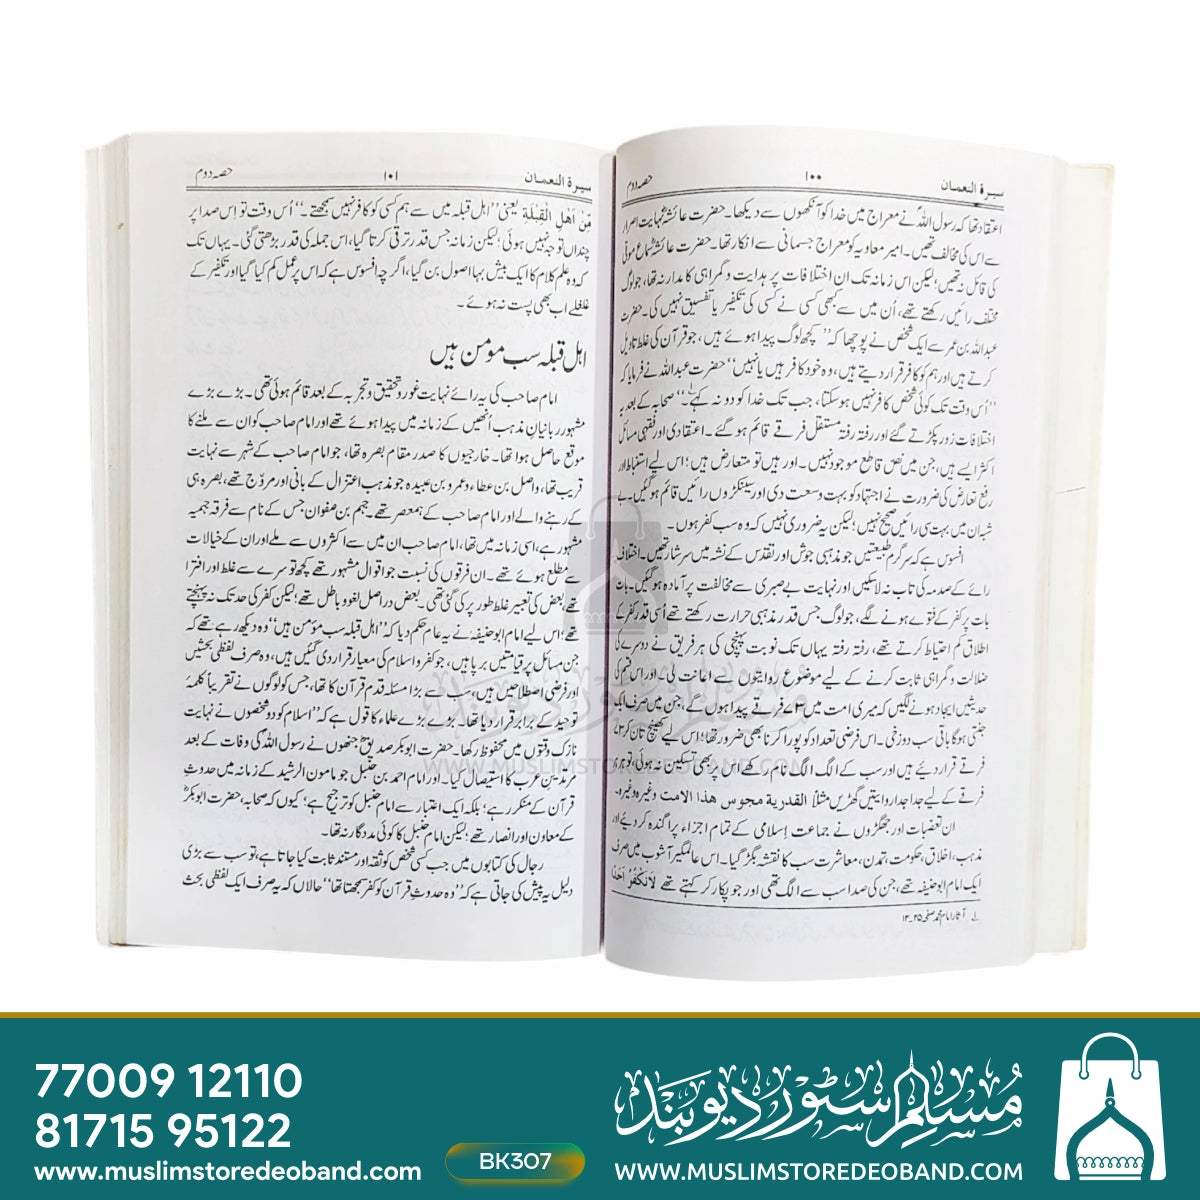 سیرۃ النعمان ۱۰۰ حصہ دوم
اعتقاد تھا کہ رسول اللہؐ نے معراج میں خدا کو آنکھوں سے دیکھا۔ حضرت عائشہؓ نہایت اصرار
سے اس کی مخالف تھیں۔ امیر معاویہ کو معراج جسمانی سے انکار تھا۔ حضرت عائشہؓ سماع موتی
کی قائل نہ تھیں؛ لیکن اس زمانہ تک ان اختلافات پر ہدایت و گمراہی کا مدار نہ تھا، جو لوگ
مختلف رائیں رکھتے تھے، اُن میں سے کبھی کسی نے کسی کی تکفیر یا تفسیق نہیں کی۔ حضرت
عبداللہ بن عمر سے ایک شخص نے پوچھا کہ ’’کچھ لوگ پیدا ہوئے ہیں، جو قرآن کی غلط تاویل
کرتے ہیں اور ہم کو کافر قرار دیتے ہیں، وہ خود کافر ہیں یا نہیں‘‘ حضرت عبداللہ نے فرمایا کہ
’’اُس وقت تک کوئی شخص کافر نہیں ہوسکتا، جب تک خدا کو دو نہ کہے‘‘۔ صحابہ کے بعد یہ
اختلافات زور پکڑتے گئے اور رفتہ رفتہ مستقل فرقے قائم ہوگئے۔ اعتقادی اور فقہی مسائل
اکثر ایسے ہیں، جن میں نص قاطع موجود نہیں۔ اور ہیں تو متعارض ہیں؛ اس لیے استنباط اور
رفع تعارض کی ضرورت نے اجتہاد کو بہت وسعت دی اور سینکڑوں رائیں قائم ہوگئیں۔ بے
شبہ ان میں بہت سی رائیں صحیح نہیں؛ لیکن یہ ضروری نہیں کہ وہ سب کفر ہوں۔
افسوس ہے کہ سرگرم طبیعتیں جو مذہبی جوش اور تقدس کے نشہ میں سرشار تھیں۔ اختلاف
رائے کے صدمہ کی تاب نہ لاسکیں اور نہایت بے صبری سے مخالفت پر آمادہ ہوگئیں۔ بات
بات پر کفر کے فتوے ہونے لگے، جو لوگ جس قدر مذہبی حرارت رکھتے تھے اُسی قدر کفر کے
اطلاق میں کم احتیاط کرتے تھے، رفتہ رفتہ یہاں تک نوبت پہنچی کی ہر فریق نے دوسرے کی
ضلالت و گمراہی ثابت کرنے کے لیے موضوع روایتوں سے اعانت لی۔ اور اس قسم کی
حدیثیں ایجاد ہونے لگیں کہ میری امت میں ۷۳ فرقے پیدا ہوں گے، جن میں صرف ایک
جنتی ہوگا باقی سب دوزخی۔ اس فرضی تعداد کو پورا کرنا بھی ضرور تھا؛ اس لیے کھینچ تان کر ۷۳
فرقے قرار دیئے ہیں اور سب کے الگ الگ نام رکھے اس پر بھی تسکین نہ ہوئی، تو ہر ہر
فرقے کے لیے جدا جدا روایتیں گھڑیں مثلاً القدریۃ مجوس هذا الامت وغیرہ وغیرہ۔
ان تعصبات اور جھگڑوں نے جماعت اسلامی کے تمام اجزاء پراگندہ کردیے اور
مذہب، اخلاق، حکومت، تمدن، معاشرت سب کا نقشہ بگڑ گیا۔ اس عالمگیر آشوب میں صرف
ایک امام ابوحنیفہ تھے، جن کی صدا سب سے الگ تھی اور جو پکار کر کہتے تھے لَانُكَفِّرُ اَحَدًا
لے آثار امام محمد صفحہ ۲۵۔۱۲
سیرۃ النعمان ۱۰۱ حصہ دوم
مِّنْ اَهْلِ الْقِبْلَةِ یعنی ’’اہل قبلہ میں سے ہم کسی کو کافر نہیں سمجھتے۔‘‘ اُس وقت تو اِس صدا پر
چنداں توجہ نہیں ہوئی؛ لیکن زمانہ جس قدر ترقی کرتا گیا، اس جملہ کی قدر بڑھتی گئی۔ یہاں تک
کہ وہ علم کلام کا ایک بیش بہا اصول بن گیا، اگرچہ افسوس ہے کہ اس پر عمل کم کیا گیا اور تکفیر کے
غلغلے اب بھی پست نہ ہوئے۔
اہل قبلہ سب مؤمن ہیں
امام صاحب کی یہ رائے نہایت غور و تحقیق و تجربہ کے بعد قائم ہوئی تھی۔ بڑے بڑے
مشہور بانیانِ مذہب اُنھیں کے زمانہ میں پیدا ہوئے تھے اور امام صاحب کو ان سے ملنے کا
موقع حاصل ہوا تھا۔ خارجیوں کا صدر مقام بصرہ تھا، جو امام صاحب کے شہر سے نہایت
قریب تھا، واصل بن عطاء و عمرو بن عبیدہ جو مذہب اعتزال کے بانی اور مروّج تھے، بصرہ ہی
کے رہنے والے اور امام صاحب کے ہمعصر تھے۔ جہم بن صفوان جس کے نام سے فرقہ جہمیہ
مشہور ہے، اسی زمانہ میں تھا، امام صاحب ان میں سے اکثروں سے ملے اور ان کے خیالات
سے مطلع ہوئے تھے۔ ان فرقوں کی نسبت جو اقوال مشہور تھے کچھ تو سرے سے غلط اور افترا
تھے، بعض کی تعبیر غلط طور پر کی گئی تھی۔ بعض دراصل لغو و باطل تھے؛ لیکن کفر کی حد تک نہ پہنچتے
تھے؛ اس لیے امام ابوحنیفہ نے یہ عام حکم دیا کہ ’’اہل قبلہ سب مؤمن ہیں‘‘ وہ دیکھ رہے تھے کہ
جن مسائل پر قیامتیں برپا ہیں، جو کفر و اسلام کی معیار قرار دی گئیں ہیں، وہ صرف لفظی بحثیں
اور فرضی اصطلاحیں ہیں، سب سے بڑا مسئلہ قدم قرآن کا تھا، جس کو لوگوں نے تقریباً کلمۂ
توحید کے برابر قرار دیا تھا۔ بڑے بڑے علماء کا قول ہے کہ ’’اسلام کو دو شخصوں نے نہایت
نازک وقتوں میں محفوظ رکھا۔ حضرت ابوبکر صدیقؓ جنھوں نے رسول اللہ کی وفات کے بعد
مرتدین عرب کا استیصال کیا۔ اور امام احمد بن حنبل جو مامون الرشید کے زمانہ میں حدوثِ
قرآن کے منکر رہے؛ بلکہ ایک اعتبار سے امام حنبل کو ترجیح ہے؛ کیوں کہ صحابہ، حضرت ابوبکرؓ
کے معاون اور انصار تھے؛ لیکن امام حنبل کا کوئی مددگار نہ تھا۔
رجال کی کتابوں میں جب کسی شخص کو ثقہ اور مستند ثابت کیا جاتا ہے، تو سب سے بڑی
دلیل یہ پیش کی جاتی ہے کہ ’’وہ حدوثِ قرآن کو کفر سمجھتا تھا‘‘ حالاں کہ یہ صرف ایک لفظی بحث
WWW.MUSLIMSTOREDEOBAND.COM
77009 12110
81715 95122
www.muslimstoredeoband.com
BK307
مسلم سٹور دیوبند
WWW.MUSLIMSTOREDEOBAND.COM